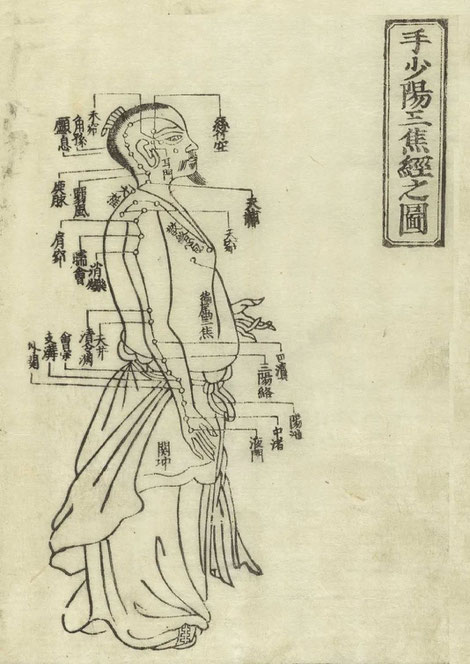 手少陽三焦經之圖
絲竹空
禾窌
角孫
顱息
耳門
瘈脉
翳風
天牖
天窌
肩窌
臑會
消濼
天井
清冷淵
會宗
支溝
外関
四瀆
三陽絡
陽池
中渚
液門
関冲